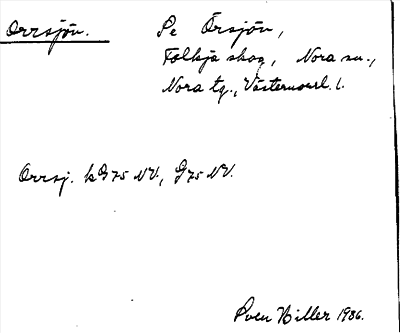 Orrsjön. Se Örsjön,
Folkjä skog, Nora sn.,
Nora tg., Västernorrl. l.
Orrsj. k G 75 NV., G 75 NV.
Sven Hiller 1936.